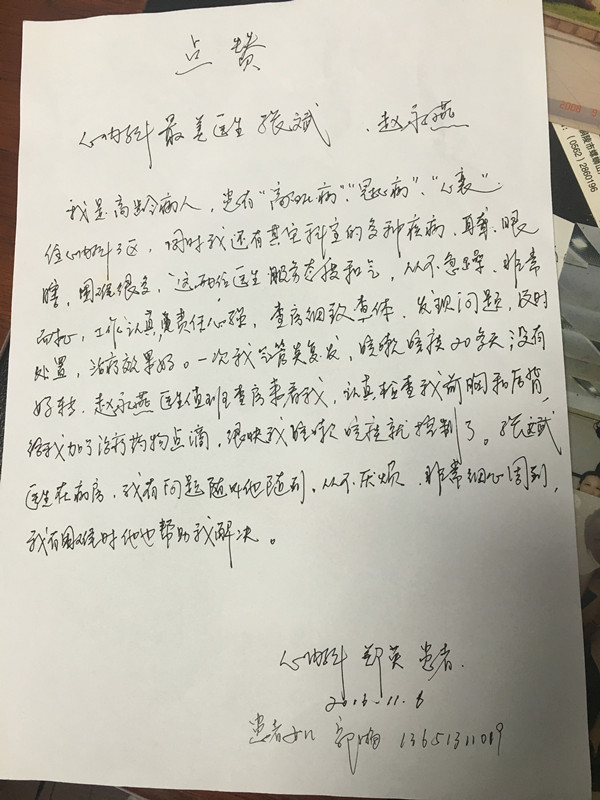 点赞
心内科最美医生 张斌 . 赵永燕
我是高龄病人，患有"高血病"."冠心病"、"心衰".
住心内科3区，同时我还有其它科室的多种疾病，耳聋.眼
瞎，困难很多，这两位医生服务态度和气，从不急躁.非常
耐心，工作认真,责任心强，查房细致查体.发现问题，及时
处置，治疗效果好。一次我气管炎复发，咳嗽咳痰20多天没有
好转.赵永燕医生值班查房来看我，认真检查我前胸和后背，
给我加了治疗药物点滴，很快我咳嗽咳痰就控制了。张斌
医生在病房，我有问题随叫他随到，从不厌烦.非常细心周到，
我有困难时他也帮助我解决。
心内科 郑英 患者.
11.8
患者女儿 13651311019
2008
(0562) 2860196